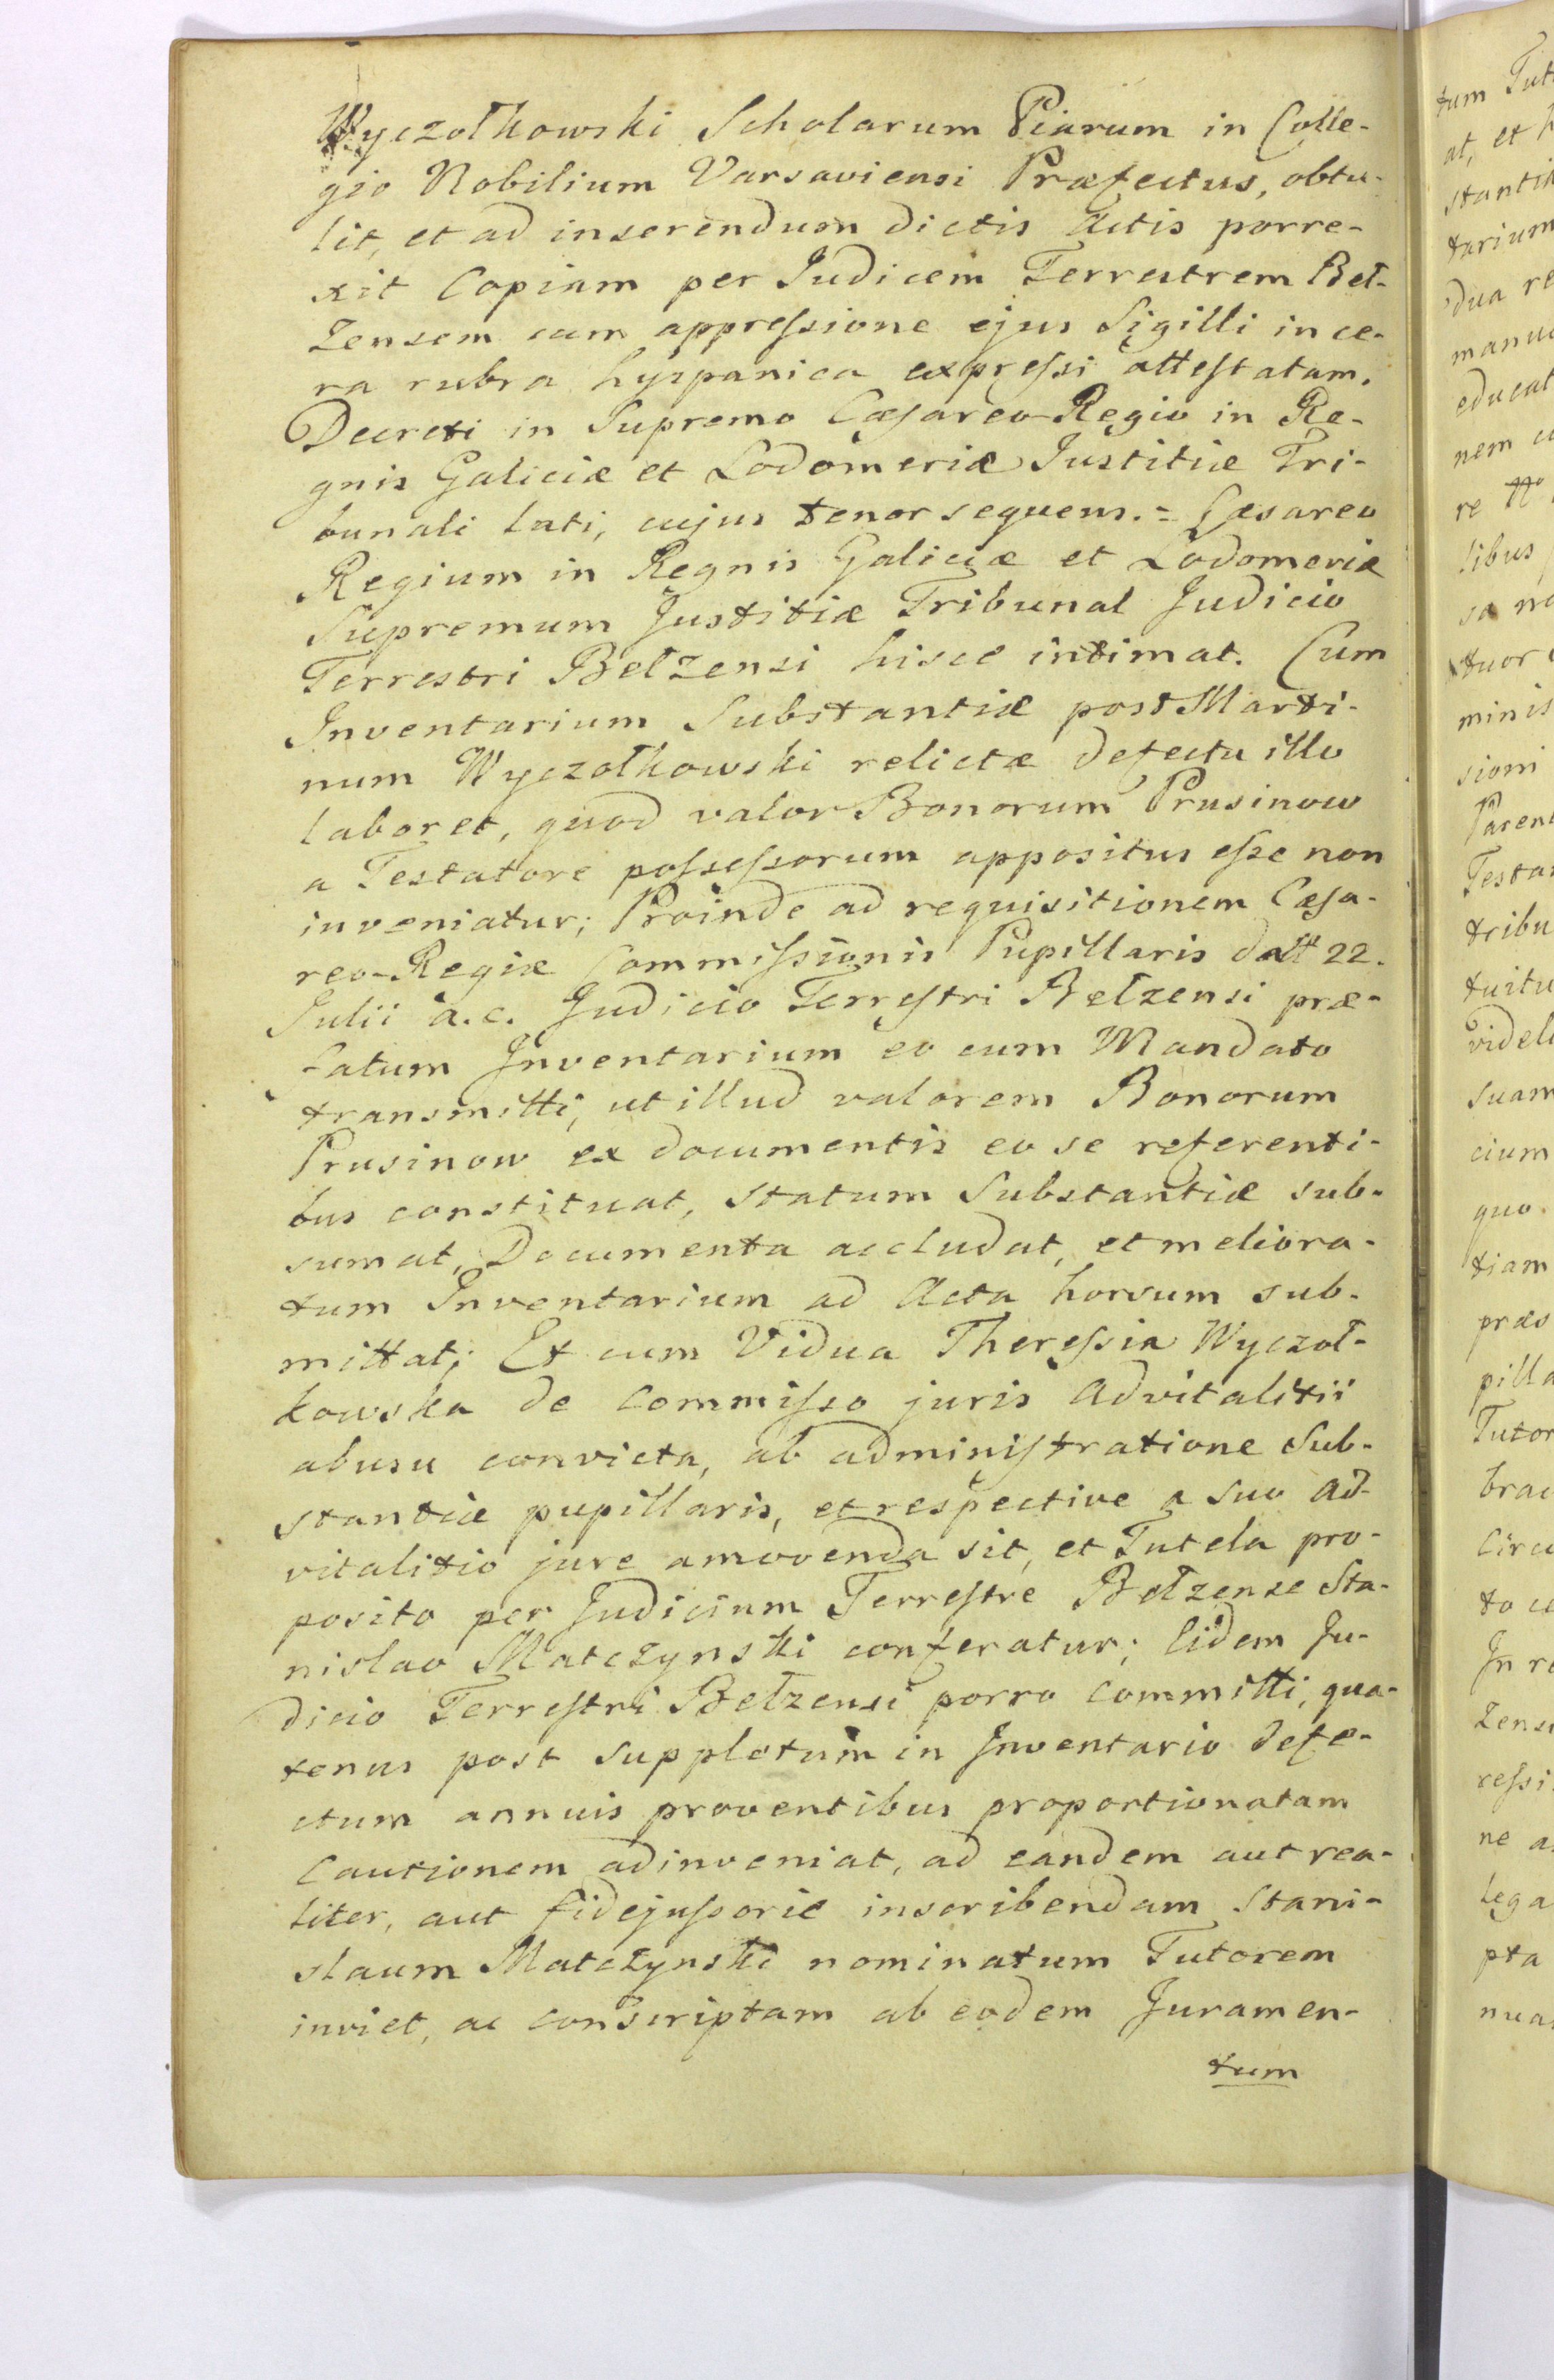 Wyczołkowski Scholarum Piarum in Colle-
gio Nobilium Varsaviensi Præfectus, obtu-
lit, et ad inserendum dictis Actis porre-
xit Copiam per Judicem Terrestrem Beł-
zensem cum appressione ejus Sigilli in ce-
ra rubra hyspanica expressi attestatam.
Decreti in Supremo Cæsareo-Regio in Re-
gnis Galiciæ et Lodomeriæ Justitiæ Tri-
bunali lati, cujus tenor sequens. = Cæsareo
Regium in Regnis Galiciæ et Lodomeriæ
Supremum Justitiæ Tribunal Judicio
Terrestri Bełzensi hisce intimat. Cum
Inventarium Substantiæ post Marti-
num Wyczołkowski relictæ defectu illo
laboret, quod valor Bonorum Prusinow
a Testatore possessorum appositus esse non
inveniatur; Proinde ad requisitionem Cæsa-
reo-Regiæ Commissionis Pupillaris datt 22.
Julii a. c. Judicio Terrestri Bełzensi præ-
fatum Inventarium eo cum Mandato
transmitti, ut illud valorem Bonorum
Prusinow ex documentis eo se referenti-
bus constituat, statum Substantiæ sub-
sumat, Documenta accludat, et meliora-
tum Inventarium ad Acta horsum sub-
mittat; Et cum Vidua Theressia Wyczoł-
kowska de commisso juris Advitalitii
abusu convicta, ab administratione Sub-
stantiæ pupillaris, et respective a suo Ad-
vitalitio jure amovenda sit, et Tutela pro-
posito per Judicium Terrestre Bełzense Sta-
nislao Matczynski conferatur; Eidem Ju-
dicio Terrestri Bełzensi porro committi, qua-
tenus post suppletum in Inventario defe-
ctum annuis proventibus proportionatam
Cautionem adinveniat, ad eandem aut rea-
liter, aut fidejussorie inscribendam Stani-
slaum Matczynski nominatum Tutorem
inviet, ac conscriptam ab eodem Juramen-
tum